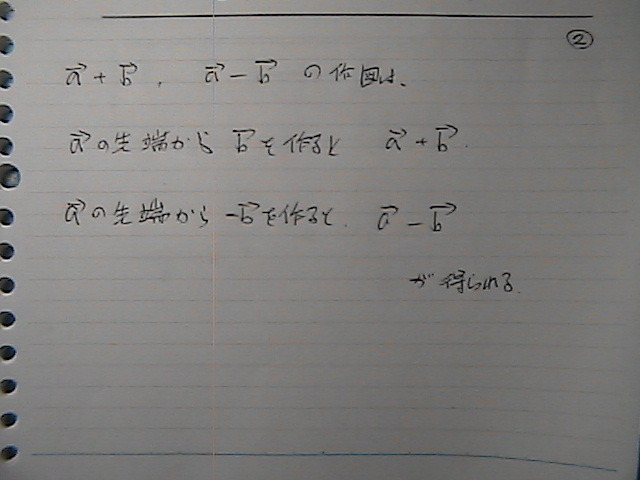 ②
a⃗ + b⃗ 、 a⃗ − b⃗ の作図は、
a⃗ の先端から b⃗ を作ると a⃗ + b⃗ .
a⃗ の先端から −b⃗ を作ると、 a⃗ − b⃗
が得られる.